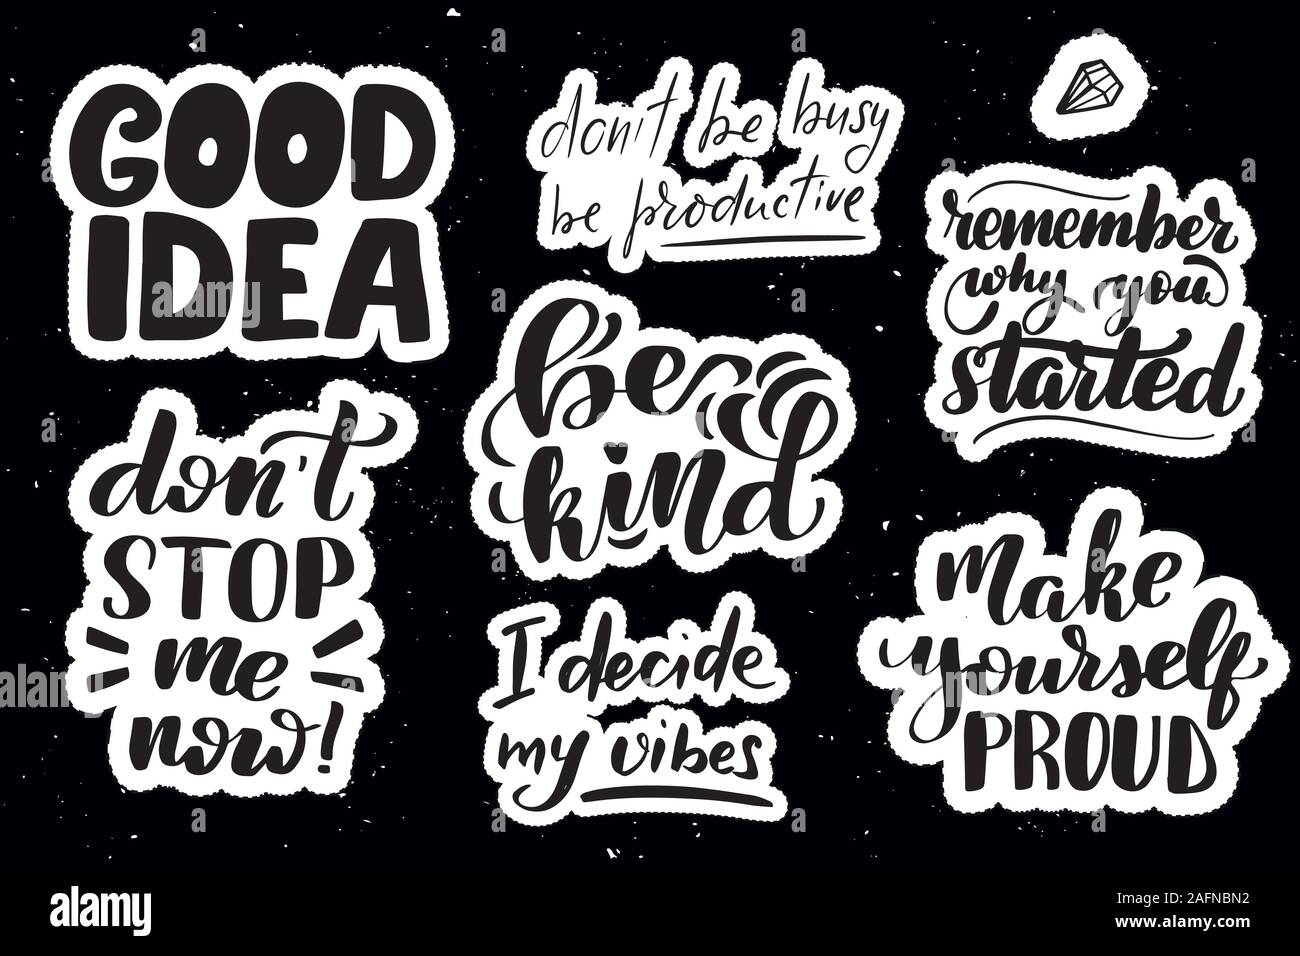 GOOD
IDEA
don't be busy
be productive
remember
why you
started
don't
STOP
me
now!
be
kind
I decide
my vibes
make
yourself
PROUD
alamy
Image ID: 2AFNBN2
www.alamy.com